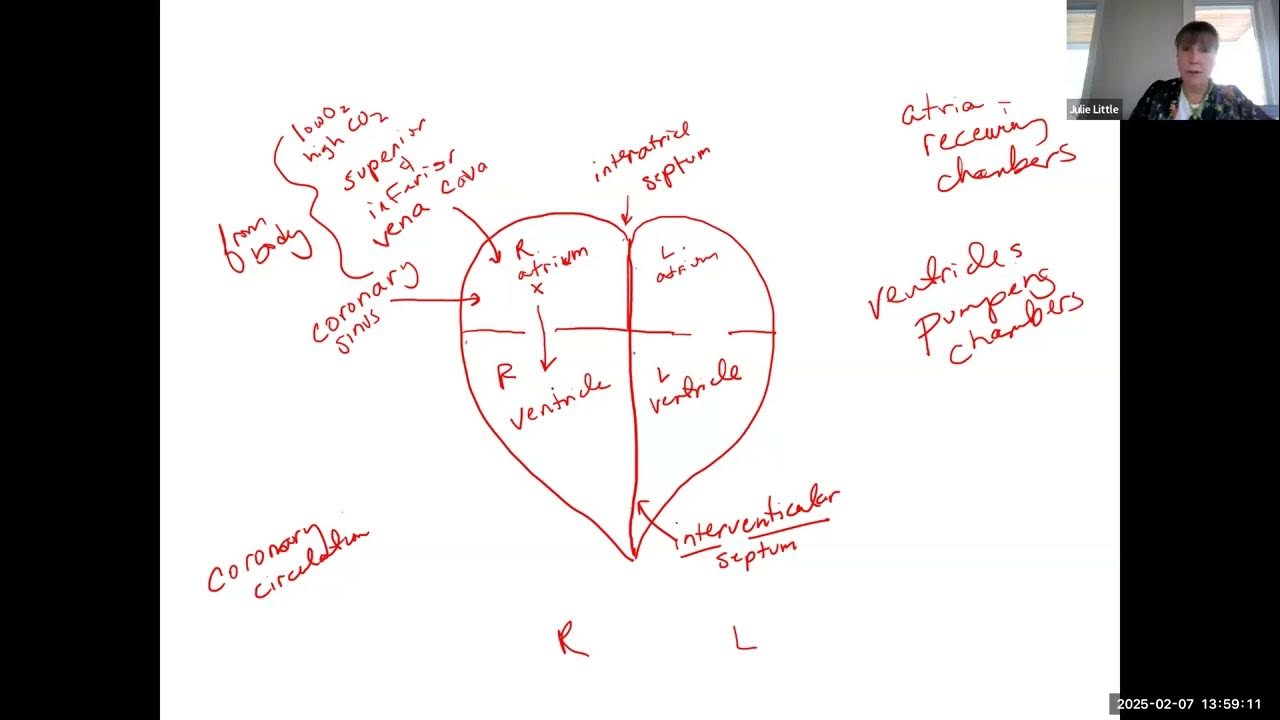 low O2
high CO2
superior
&
inferior
vena cava
from
body
coronary
sinus
interatrial
septum
R.
atrium
x
L.
atrium
R
ventricle
L
ventricle
interventicular
septum
coronary
circulation
R
L
atria -
receiving
chambers
ventricles
pumping
chambers
Julie Little
2025-02-07 13:59:11